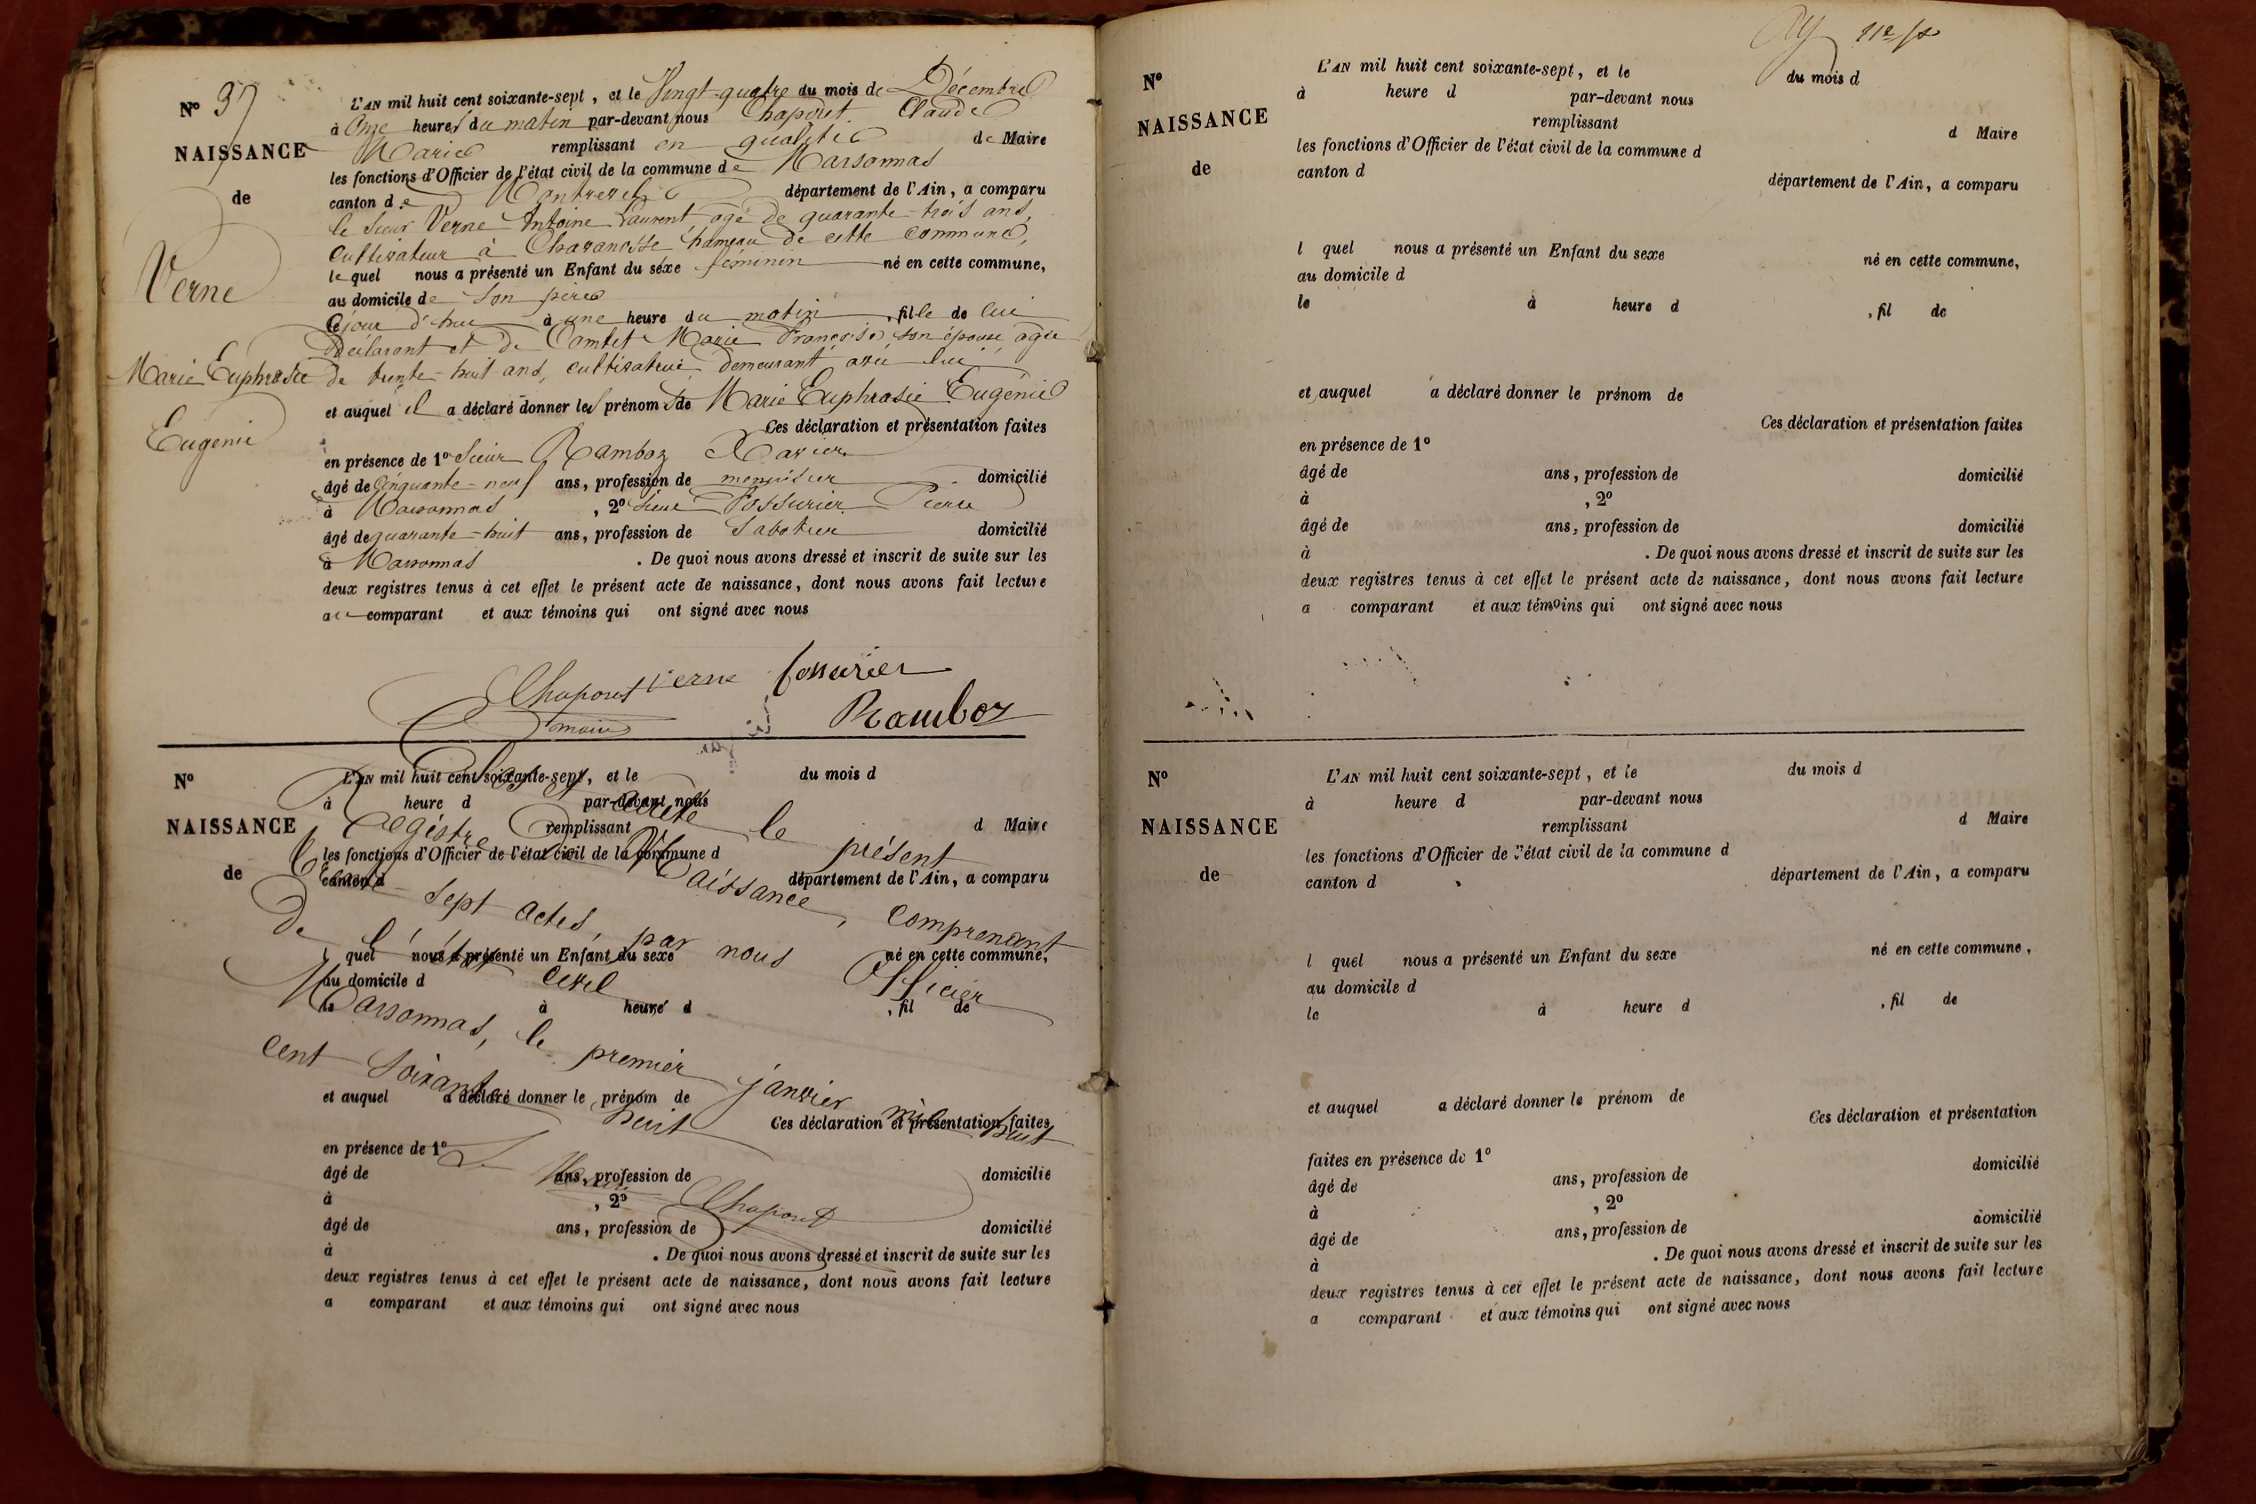 N° 37
NAISSANCE
de
Verne
Marie Euphrasie
Eugénie
L'AN mil huit cent soixante-sept, et le Vingt-quatre du mois de Décembre
à Onze heures du matin par-devant nous Chapout Claude
Marie remplissant en qualité de Maire
les fonctions d'Officier de l'état civil de la commune de Marsonnas
canton de Montrevel département de l'Ain, a comparu
le sieur Verne Antoine Laurent âgé de quarante-trois ans,
cultivateur à Charanosse hameau de cette commune,
lequel nous a présenté un Enfant du sexe féminin né en cette commune,
au domicile de son père
Cejour d'hui à une heure du matin, fille de lui
Déclarant et de Comtet Marie Françoise son épouse âgée
de trente-huit ans, cultivatrice demeurant avec lui
et auquel il a déclaré donner les prénoms de Marie Euphrasie Eugénie
Ces déclaration et présentation faites
en présence de 1° Sieur Ramboz Xavier
âgé de Cinquante-neuf ans, profession de menuisier domicilié
à Marsonnas, 2° sieur Fossurier Pierre
âgé de quarante-huit ans, profession de Sabotier domicilié
à Marsonnas. De quoi nous avons dressé et inscrit de suite sur les
deux registres tenus à cet effet le présent acte de naissance, dont nous avons fait lecture
au comparant et aux témoins qui ont signé avec nous
Chapout Verne fossurier
maire Ramboz
N°
NAISSANCE
de
L'AN mil huit cent soixante-sept, et le du mois d
à heure d par-devant nous
remplissant d Maire
les fonctions d'Officier de l'état civil de la commune d
canton d département de l'Ain, a comparu
l quel nous a présenté un Enfant du sexe né en cette commune,
au domicile d
le à heure d , fil de
et auquel a déclaré donner le prénom de
Ces déclaration et présentation faites
en présence de 1°
âgé de ans, profession de domicilié
à , 2°
âgé de ans, profession de domicilié
à . De quoi nous avons dressé et inscrit de suite sur les
deux registres tenus à cet effet le présent acte de naissance, dont nous avons fait lecture
a comparant et aux témoins qui ont signé avec nous
Clos et arrêté le présent
Registre De Naissance, comprenant
Trente-sept actes, par nous Officier
De l'état civil
Marsonnas, le premier janvier mil huit
cent soixante huit
Le Maire
Chapout
N°
NAISSANCE
de
L'AN mil huit cent soixante-sept, et le du mois d
à heure d par-devant nous
remplissant d Maire
les fonctions d'Officier de l'état civil de la commune d
canton d département de l'Ain, a comparu
l quel nous a présenté un Enfant du sexe né en cette commune,
au domicile d
le à heure d , fil de
et auquel a déclaré donner le prénom de
Ces déclaration et présentation faites
en présence de 1°
âgé de ans, profession de domicilié
à , 2°
âgé de ans, profession de domicilié
à . De quoi nous avons dressé et inscrit de suite sur les
deux registres tenus à cet effet le présent acte de naissance, dont nous avons fait lecture
a comparant et aux témoins qui ont signé avec nous
N°
NAISSANCE
de
L'AN mil huit cent soixante-sept, et le du mois d
à heure d par-devant nous
remplissant d Maire
les fonctions d'Officier de l'état civil de la commune d
canton d département de l'Ain, a comparu
l quel nous a présenté un Enfant du sexe né en cette commune,
au domicile d
le à heure d , fil de
et auquel a déclaré donner le prénom de
Ces déclaration et présentation
faites en présence de 1° domicilié
âgé de ans, profession de
à , 2° domicilié
âgé de ans, profession de
à . De quoi nous avons dressé et inscrit de suite sur les
deux registres tenus à cet effet le présent acte de naissance, dont nous avons fait lecture
a comparant et aux témoins qui ont signé avec nous